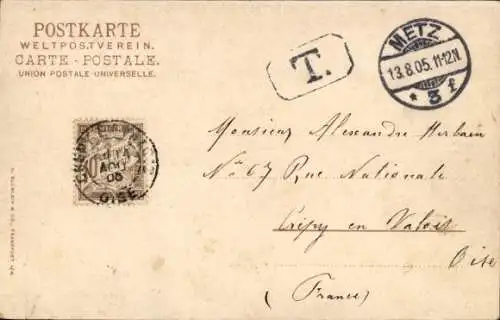 POSTKARTE
WELTPOSTVEREIN.
CARTE - POSTALE.
UNION POSTALE UNIVERSELLE.
T.
METZ
13.8.05.11-12N.
* 3 f
AOUT
05
OISE
Monsieur Alexandre Herbain
No 67 Rue Nationale
Crépy en Valois
Oise
(France)